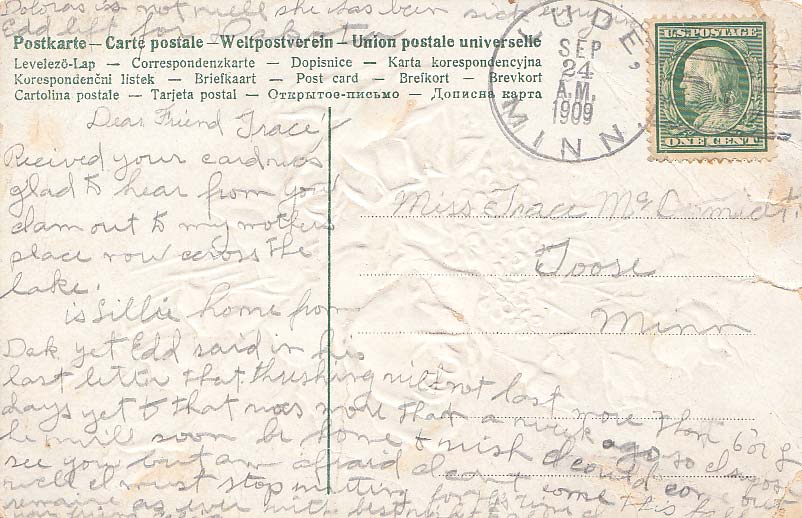 Doloras is not well she has been sick
Edd left for Dakota
Postkarte – Carte postale – Weltpostverein – Union postale universelle
Levelező-Lap — Correspondenzkarte — Dopisnice — Karta korespondencyjna
Korespondenčni listek — Briefkaart — Post card — Brefkort — Brevkort
Cartolina postale — Tarjeta postal — Открытое-письмо — Дописна карта
UDE,
MINN.
SEP
24
A.M.
1909
U.S. POSTAGE
ONE CENT
Dear Friend Trace
Recived your card was
glad to hear from you
I am out to my mothers
place now across the
lake.
is Lillie home from
Dak. yet Edd said in his
last letter that thrushing will not last more than 6 or 9
days yet & that was more than a week ago so I suppose
he will soon be home & I wish I could come but
see you but am afraid I cant come this fall
well I must stop writting for this time
remaine as ever with best
your friend
Miss Trace
Toose
Minn